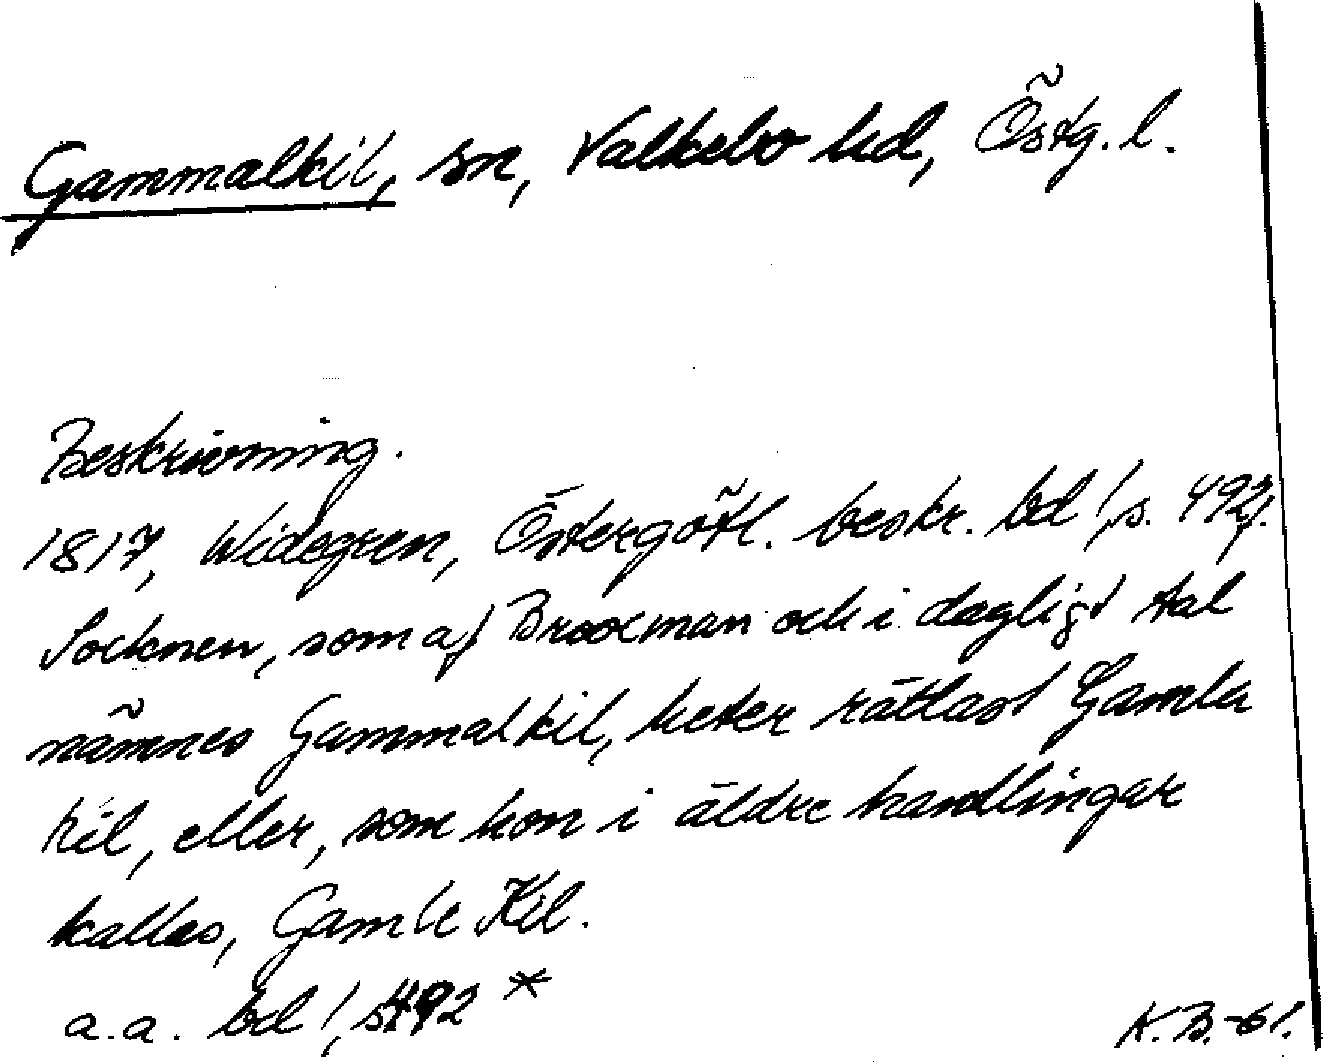 Gammalkil, sn, Valkebo hd, Östg. l.
Beskrivning.
1817, Widegren, Östergötl. beskr. bd 1, s. 492f.
Socknen, som af Broocman och i dagligt tal
nämnes Gammalkil, heter rättast Gamla
kil, eller, som hon i äldre handlingar
kallas, Gamle Kil.
a.a. bd 1, s 492 *
K. B. -61.